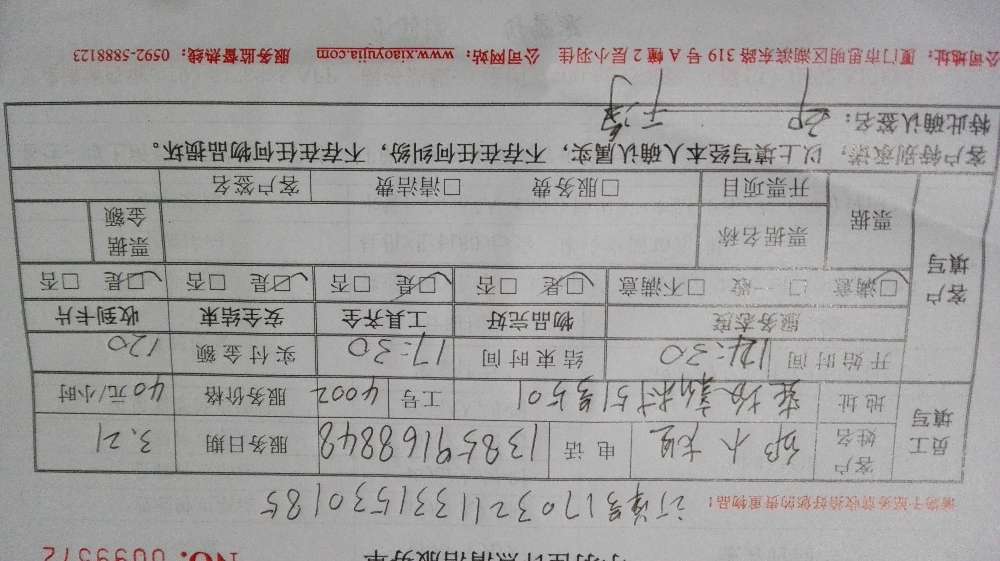 小羽佳计点清洁服务单
No. 0099572
订单号170321133153018S
请勿于服务前收拾好您的贵重物品!
员工填写
客户姓名 邹小姐 电话 13859168848 服务日期 3.21
地址 51号501 工号 4002 服务价格 40元/小时
客户填写
开始时间 14:30 结束时间 17:30 实付金额 120
服务态度 物品完好 工具齐全 安全结束 收到卡片
☑满意 □一般 □不满意 ☑是 □否 ☑是 □否 ☑是 □否 ☑是 □否
票据 票据名称 票据金额
开票项目 □服务费 □清洁费 客户签名
客户特别承诺:以上填写经本人确认属实,不存在任何纠纷,不存在任何物品损坏。
特此确认签名:
公司地址:厦门市思明区湖滨东路319号A幢2层小羽佳 公司网站:www.xiaoyujia.com 服务监督热线:0592-5888123